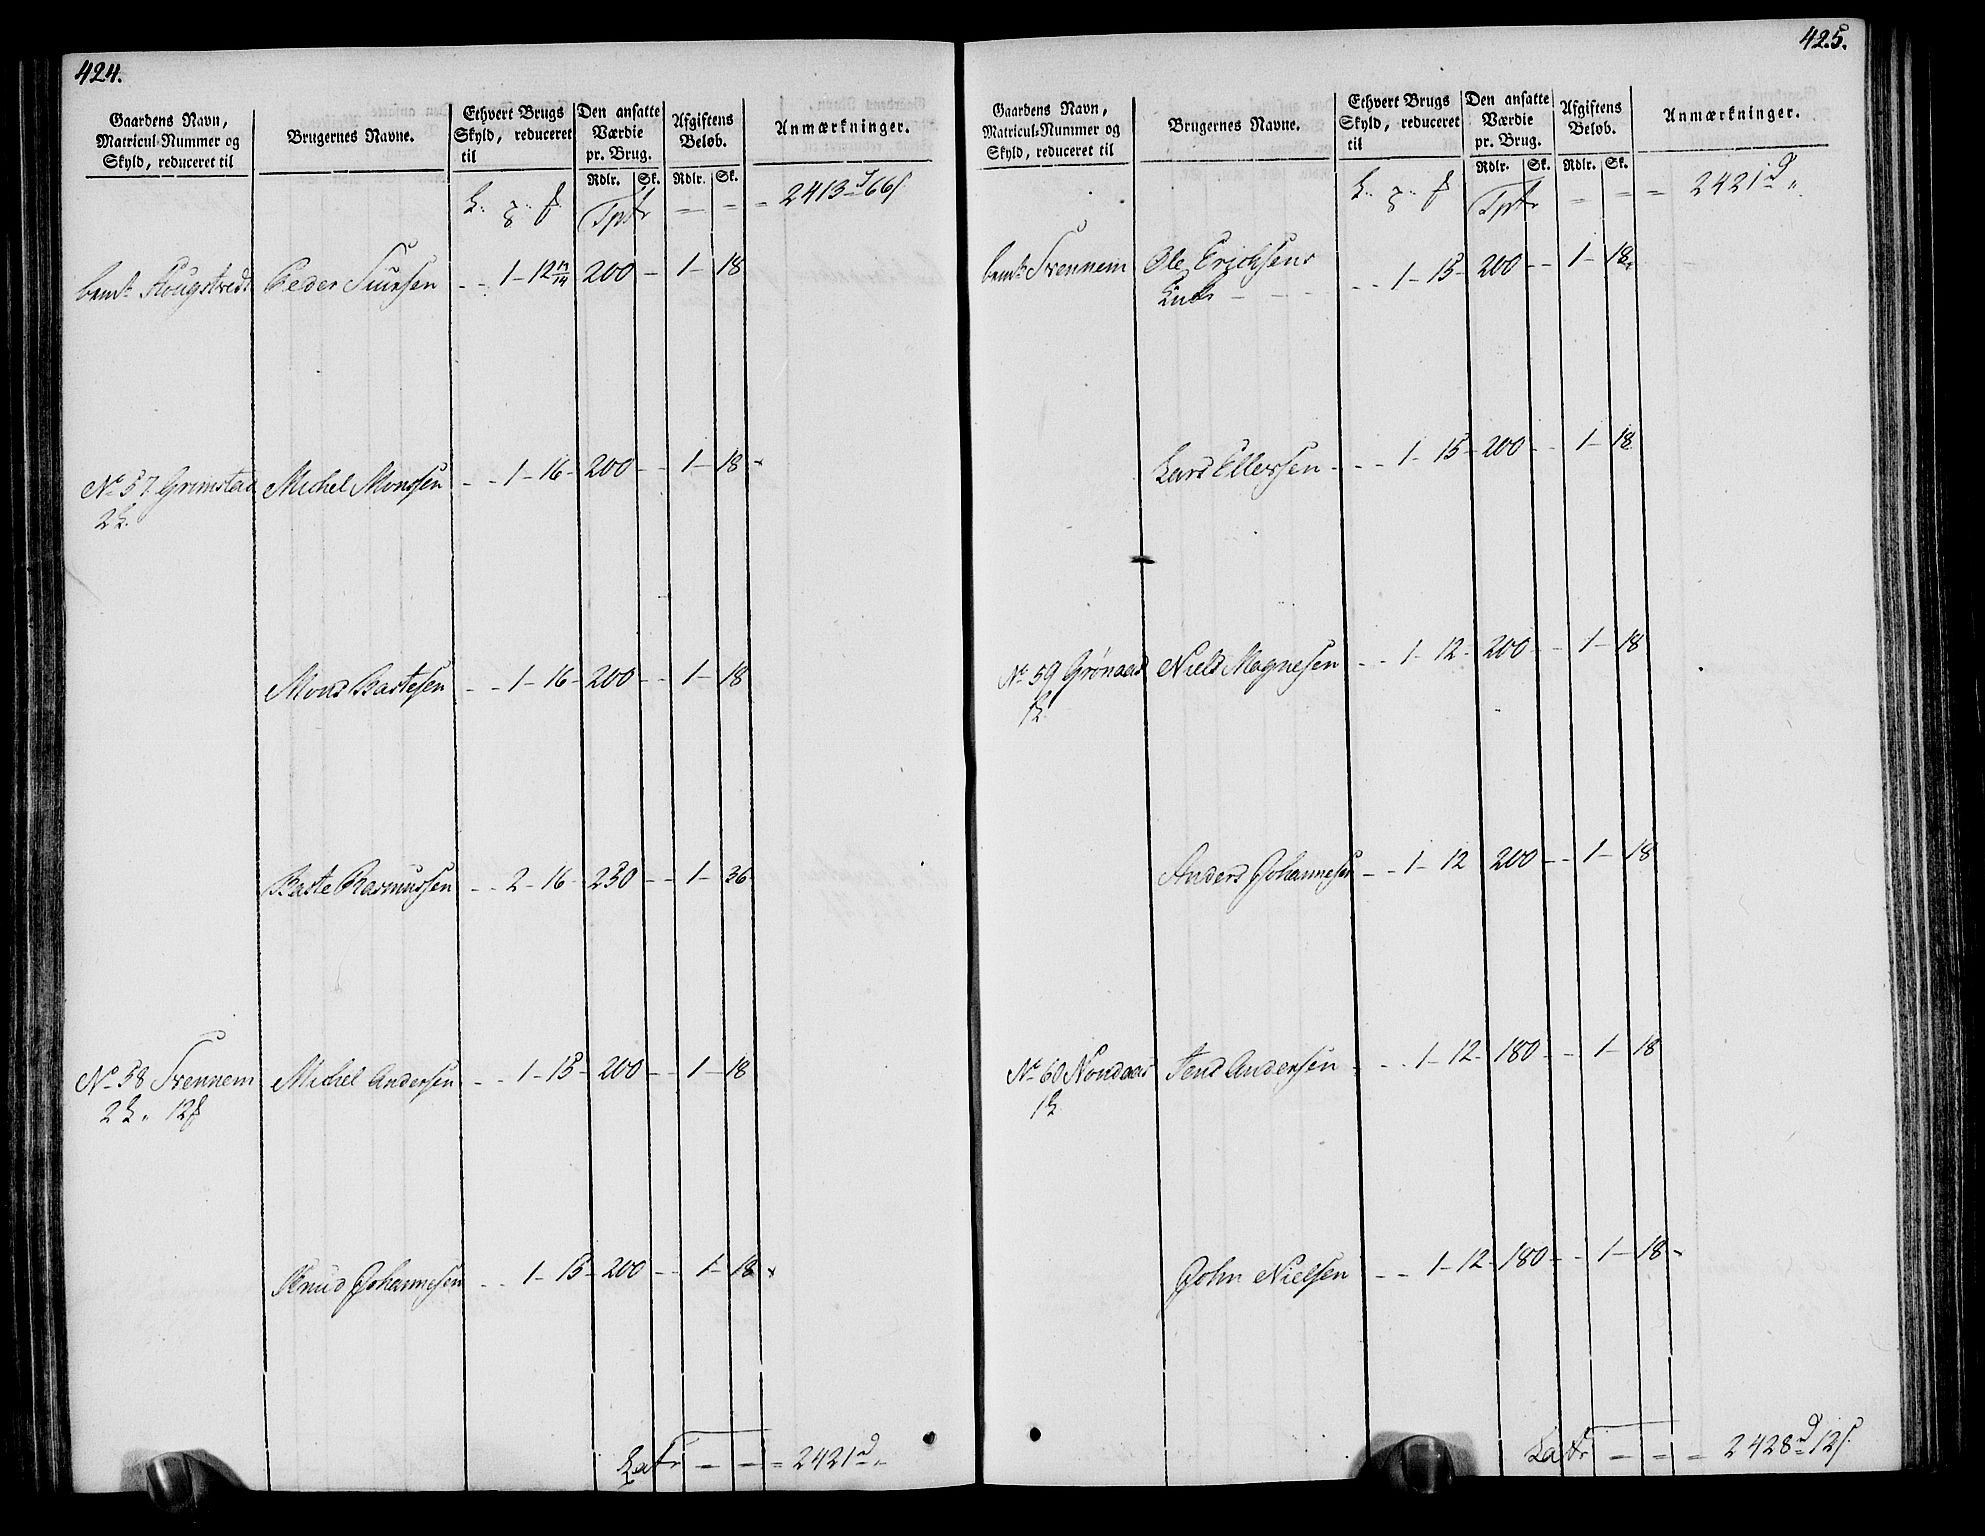 424.
Gaardens Navn,
Matricul-Nummer og
Skyld, reduceret til
Brugernes Navne.
Ethvert Brugs
Skyld, reduceret
til
Den ansatte
Værdie
pr. Brug.
Rdlr. Sk.
Afgiftens
Beløb.
Rdlr. Sk.
Anmærkninger.
Tptr - - = 2413 d 66 s
bemte Hougstvedt Peder Siursen - - 1 - 12 11/14 200 - 1 - 18
No 57 Grimstad Michel Monssen - - 1 - 16 - 200 - - 1 - 18
2 L.
Mons Bastesen - - 1 - 16 - 200 - - 1 - 18
Baste Rasmussen - - 2 - 16 - 250 - - 1 - 36
No 58 Tvennem Michel Andersen - - 1 - 15 - 200 - - 1 - 18
2 L. " 12 f
Knud Johannesen - - 1 - 15 - 200 - - 1 - 18
Latr - - = 2421 d "
425.
Gaardens Navn,
Matricul-Nummer og
Skyld, reduceret til
Brugernes Navne.
Ethvert Brugs
Skyld, reduceret
til
Den ansatte
Værdie
pr. Brug.
Rdlr. Sk.
Afgiftens
Beløb.
Rdlr. Sk.
Anmærkninger.
Tptr - - = 2421 d "
bemte Tvennem Ole Erichsens
Enke - - - - - 1 - 15 - 200 - - 1 - 18
Lars Ellersen - - - 1 - 15 - 200 - - 1 - 18
No 59 Grønaas Niels Magnesen - - 1 - 12 - 200 - - 1 - 18
1 L
Anders Johannesen - - 1 - 12 200 - - 1 - 18
No 60 Nondaas Jens Andersen - - - 1 - 12 - 180 - - 1 - 18
1 L
John Nielsen - - 1 - 12 - 180 - - 1 - 18
Latr - = = 2428 d 12 s.